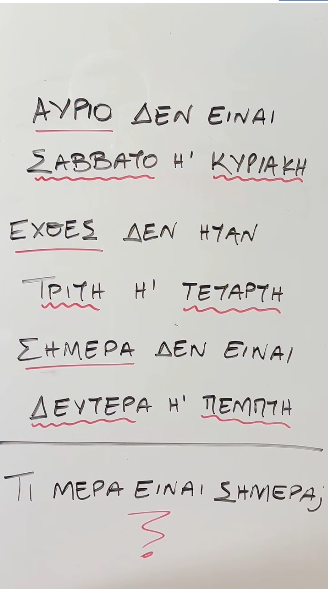 ΑΥΡΙΟ ΔΕΝ ΕΙΝΑΙ
ΣΑΒΒΑΤΟ Η' ΚΥΡΙΑΚΗ
ΕΧΘΕΣ ΔΕΝ ΗΤΑΝ
ΤΡΙΤΗ Η' ΤΕΤΑΡΤΗ
ΣΗΜΕΡΑ ΔΕΝ ΕΙΝΑΙ
ΔΕΥΤΕΡΑ Η' ΠΕΜΠΤΗ
ΤΙ ΜΕΡΑ ΕΙΝΑΙ ΣΗΜΕΡΑ;
?